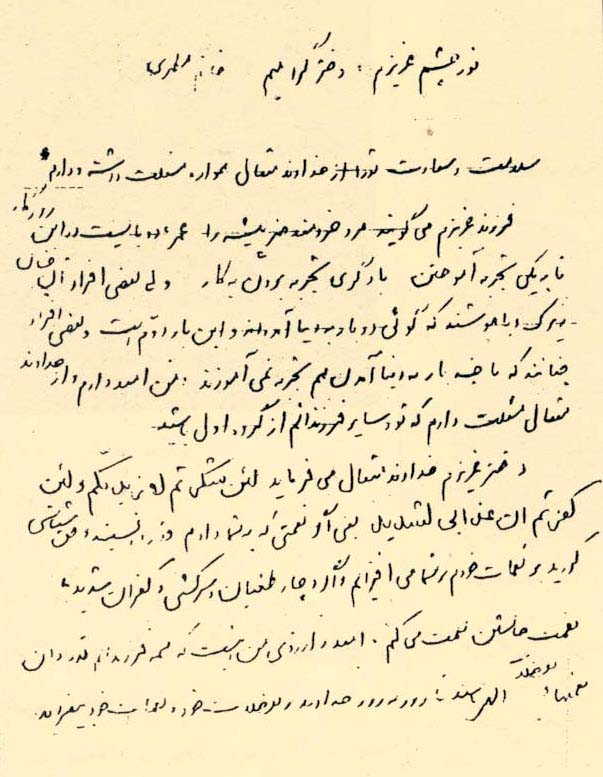 نور چشم عزیزم، دختر گرامیم خانم مطهری
سلامت و سعادت تو را از خداوند متعال همواره مسئلت داشته و دارم
فرزند عزیزم می‌گویند مرد خردمند هنر پیشه را عمر دو بایست در این روزگار
تا به یکی تجربه آموختن با دگری تجربه بردن به کار ولی بعضی افراد آنچنان
زیرک و باهوشند که گوئی دو بار به دنیا آمده‌اند و این بار دوم است و بعضی افراد
چنانند که با چند بار به دنیا آمدن هم تجربه نمی‌آموزند من امیدوارم و از خداوند
متعال مسئلت دارم که تو و سایر فرزندانم از گروه اول باشید
دختر عزیزم خداوند متعال می‌فرماید لئن شکرتم لازیدنکم و لئن
کفرتم ان عذابی لشدید یعنی اگر نعمتی که به شما دادم قدر بشناسید و حق شناسی
کنید بر نعمات خودم بر شما می‌افزایم و اگر دچار طغیان و سرکشی و کفران شوید،
نعمت جانشین نعمت می‌کنم. امید و آرزوی من اینست که همه فرزندانم قدردان
نعمتهای الهی باشند تا روز به روز خداوند بر توفیقات خود و نعمات خود بیفزاید